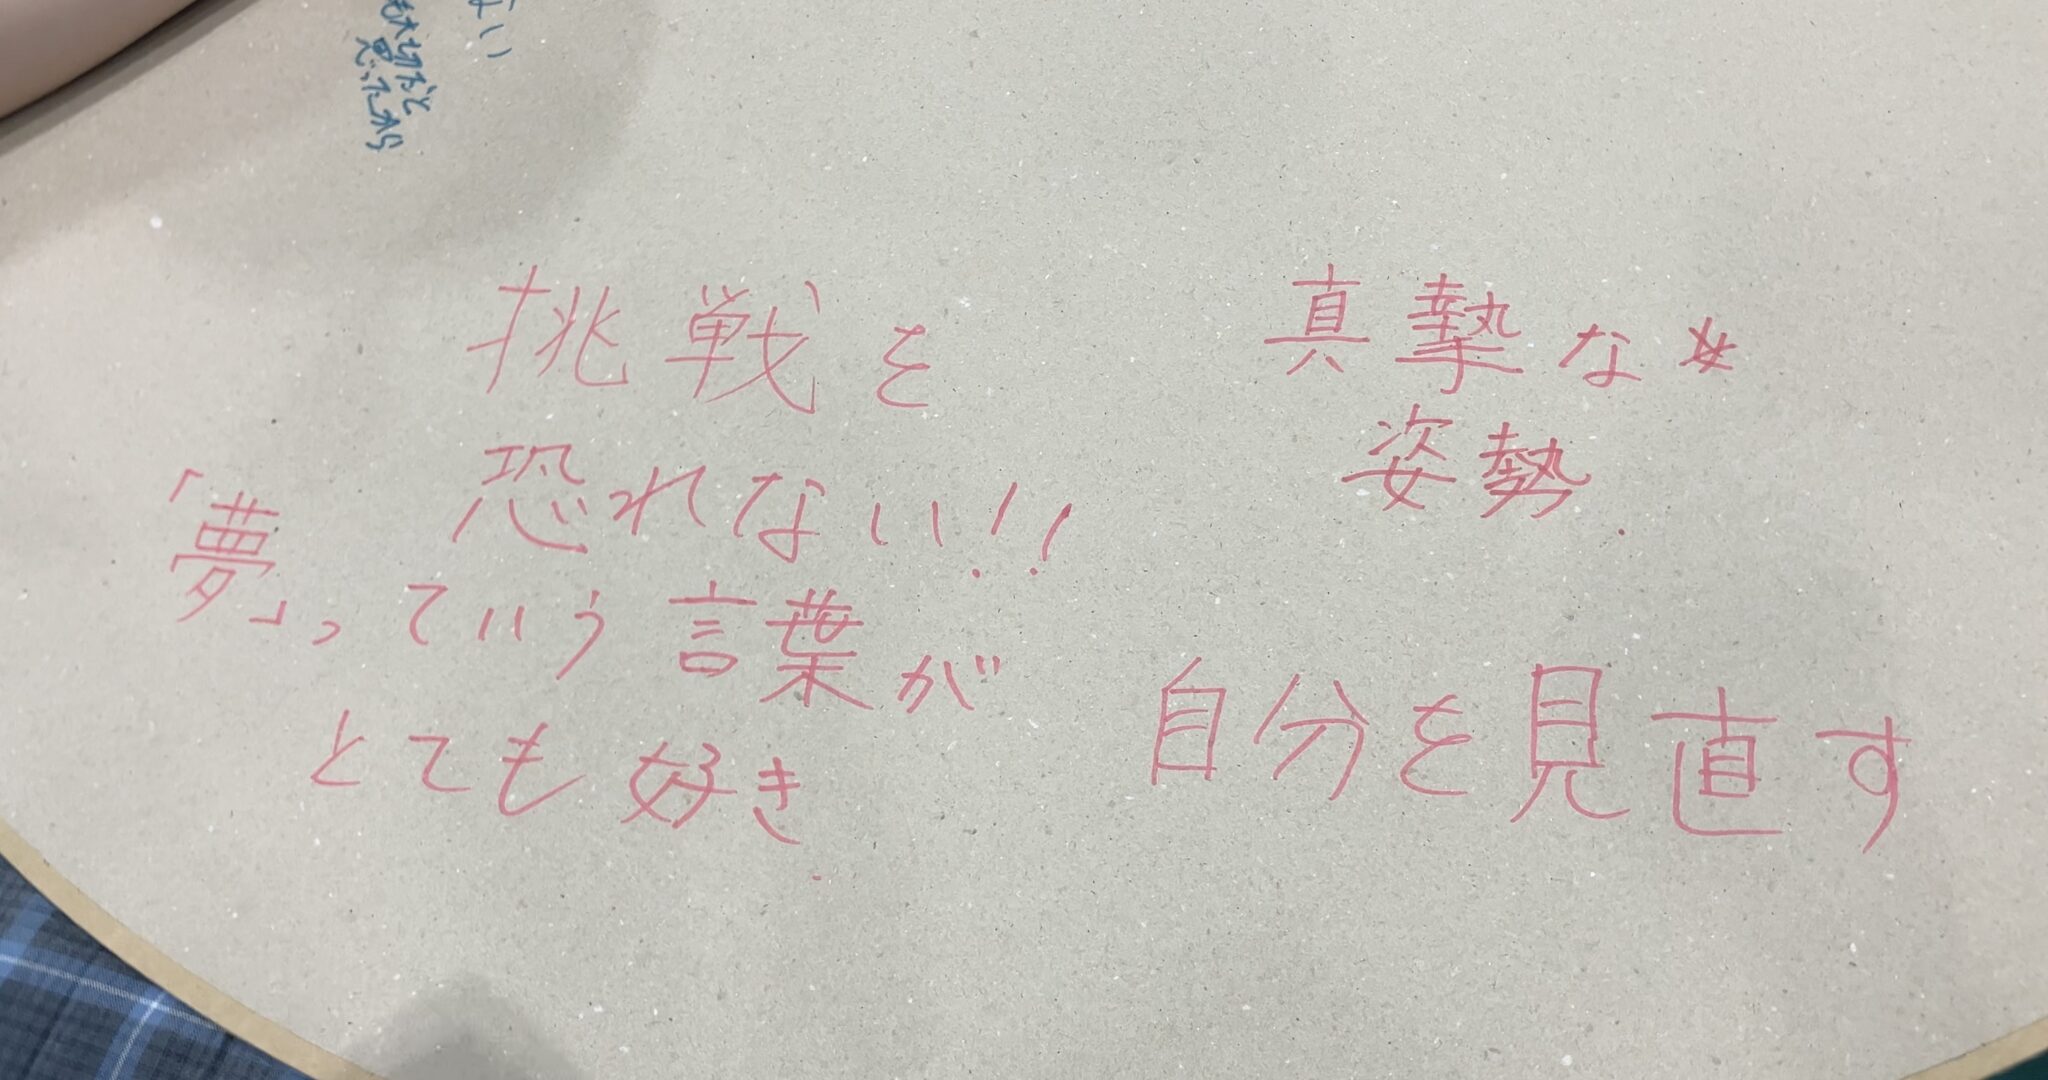 ない
も大切だと
思ったから
挑戦を
恐れない!!
「夢」っていう言葉が
とても好き.
真摯な
姿勢.
自分を見直す